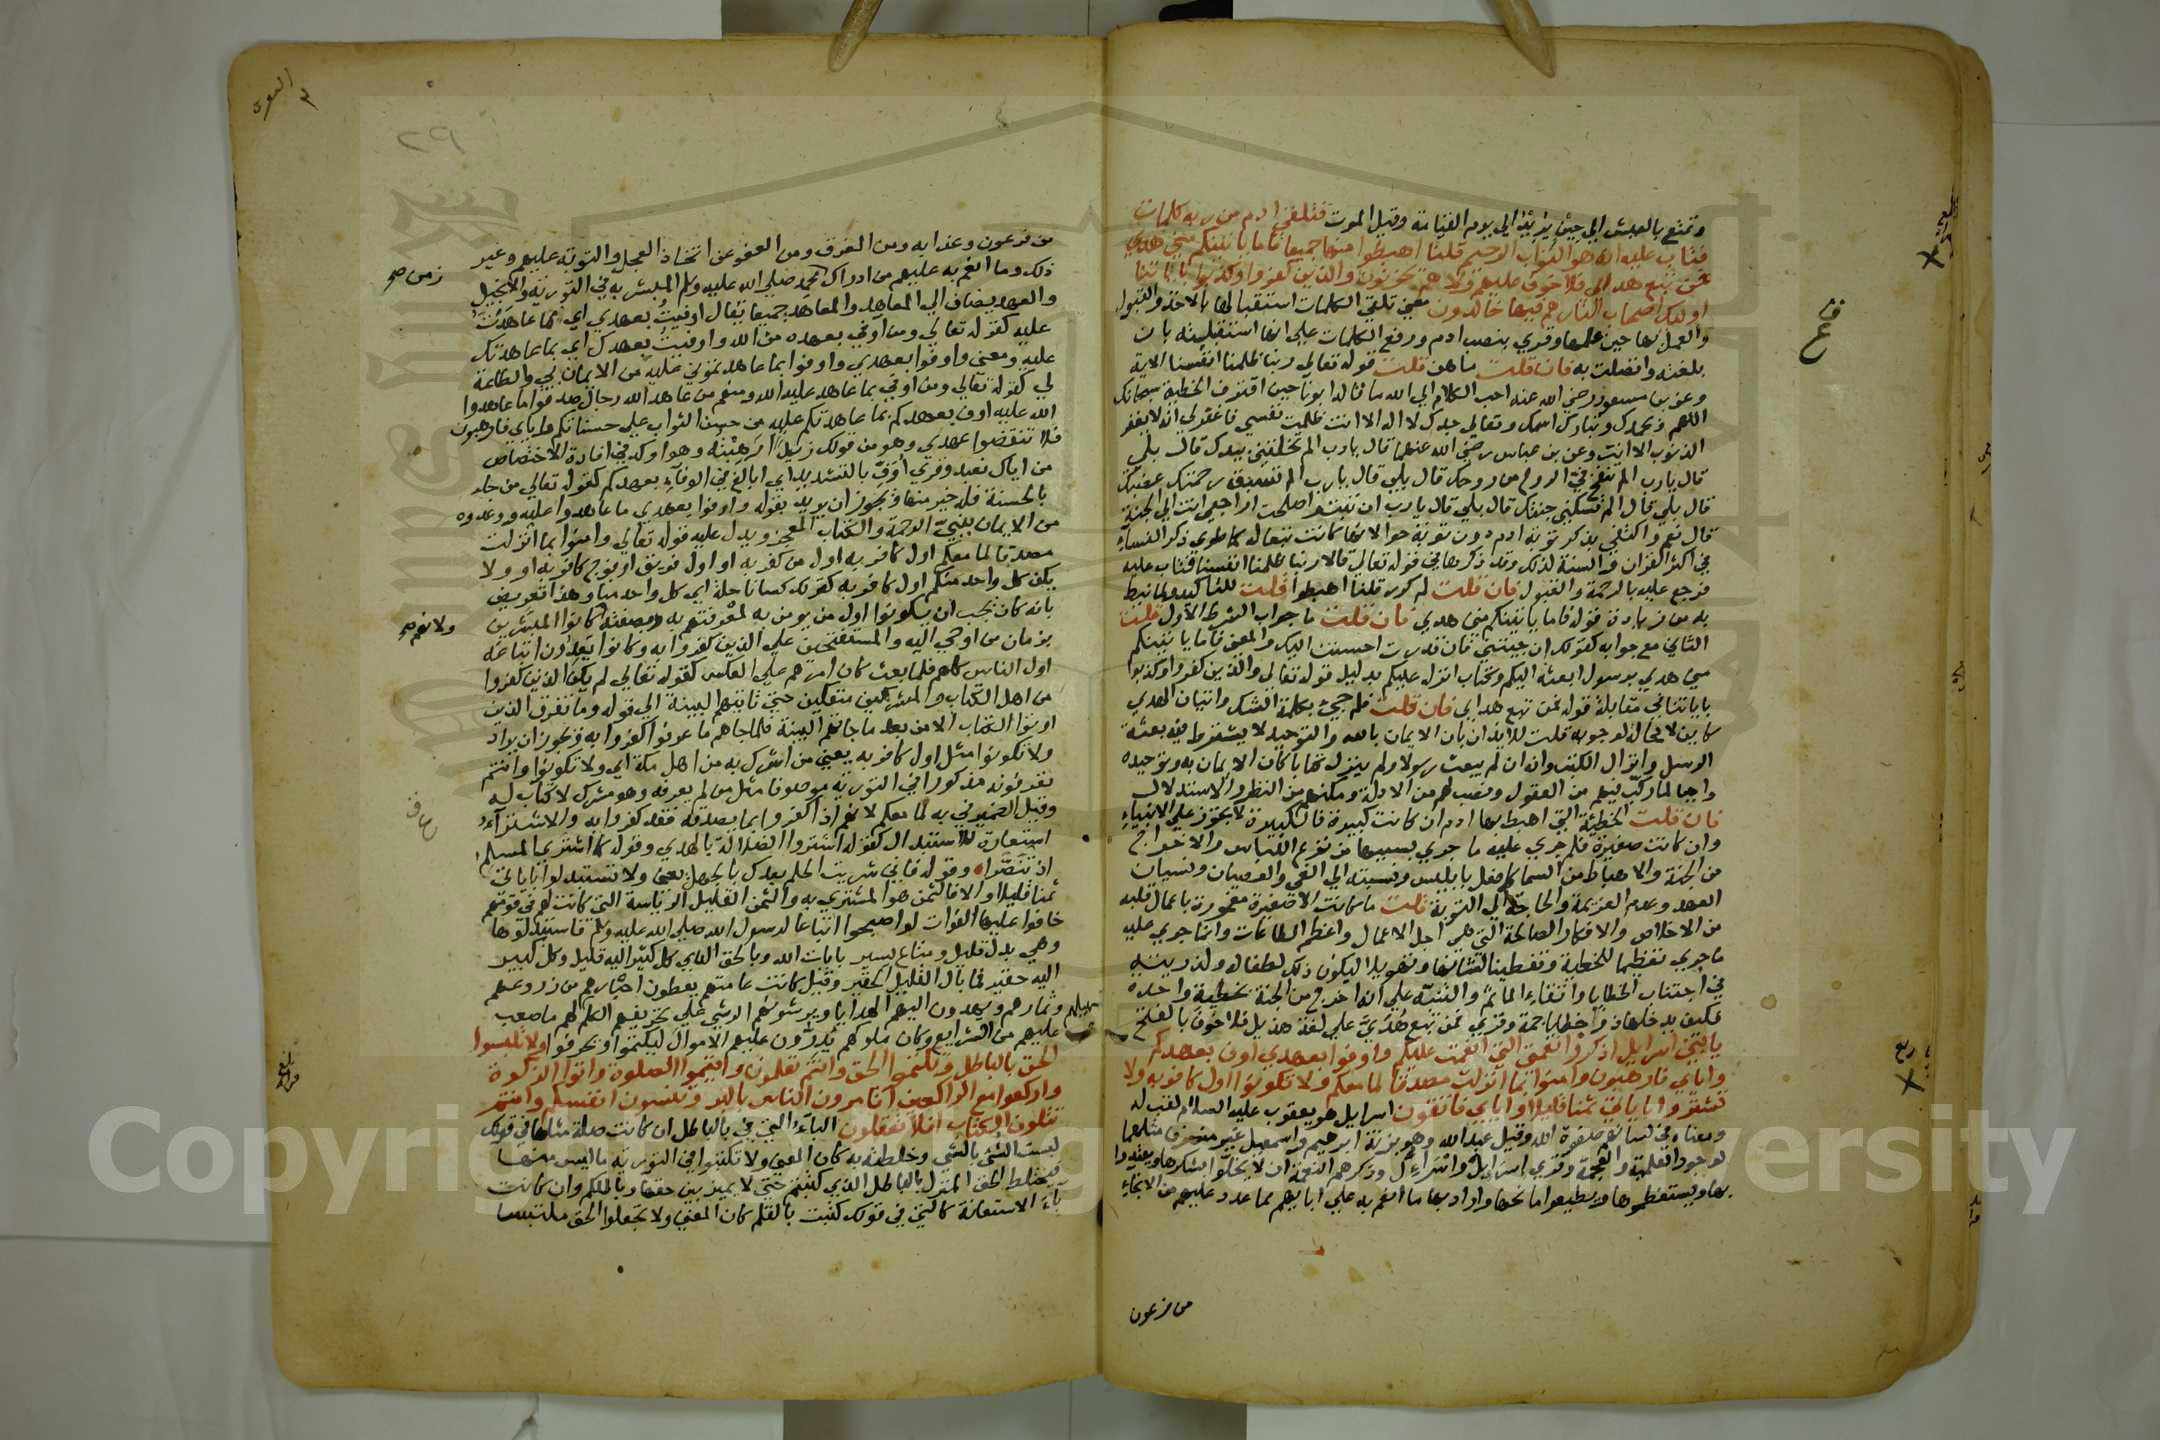 وتمتع بالعيش الي حين يريد الي يوم القيامة وقيل الموت فتلقي ادم من ربه كلمات
فتاب عليه انه هو التواب الرحيم قلنا اهبطوا منها جميعا فاما ياتينكم مني هدي
فمن تبع هداي فلا خوف عليهم ولا هم يحزنون والذين كفروا وكذبوا باياتنا
اولئك اصحاب النار هم فيها خالدون معني تلقي الكلمات استقبالها بالاخذ والقبول
والعمل بها حين علمها وقري بنصب ادم ورفع الكلمات علي انها استقبلته بان
بلغته واتصلت به فان قلت ما هن قلت قوله تعالي ربنا ظلمنا انفسنا الاية
وعن بن مسعود رضي الله عنه احب الكلام الي الله ما قاله ابونا حين اقترف الخطية سبحانك
اللهم وبحمدك وتبارك اسمك وتعالي جدك لا اله الا انت ظلمت نفسي فاغفر لي انه لا يغفر
الذنوب الا انت وعن بن عباس رضي الله عنهما قال يا رب الم تخلقني بيدك قال بلي
قال يا رب الم تنفخ في الروح من روحك قال بلي قال يا رب الم تسبق رحمتك غضبك
قال بلي قال الم تسكني جنتك قال بلي قال يا رب ان تبت واصلحت اراجعي انت الي الجنة
قال نعم واكتفي بذكر توبة ادم دون توبة حوا لانها كانت تبعا له كما طوي ذكر النساء
في اكثر القران والسنة لذلك وقد ذكرها في قوله تعالي قالا ربنا ظلمنا انفسنا فتاب عليه
فرجع عليه بالرحمة والقبول فان قلت لم كرر قلنا اهبطوا قلت للتاكيد ولما نيط
به من زيادة قوله فاما ياتينكم مني هدي فان قلت ما جواب الشرط الاول قلت
الثاني مع جوابه كقولك ان جيتني فان قدرت احسنت اليك والمعني فاما ياتينكم
مني هدي برسول ابعثه اليكم وكتاب انزل عليكم بدليل قوله تعالي والذين كفروا وكذبوا
باياتنا في مقابلة قوله فمن تبع هداي فان قلت فلم جيء بكلمة الشك واتيان الهدي
كاين لا محالة لوجوبه قلت للايذان بان الايمان بالله والتوحيد لا يشترط فيه بعثة
الرسل وانزال الكتب وانه ان لم يبعث رسولا ولم ينزل كتابا كان الايمان به وتوحيده
واجبا لما ركب فيهم من العقول ونصب لهم من الادلة ومكنهم من النظر والاستدلال
فان قلت الخطيئة التي اهبط بها ادم ان كانت كبيرة فالكبيرة لا يجوز علي الانبياء
وان كانت صغيرة فلم جري عليه ما جري بسببها من نزع اللباس والاخراج
من الجنة والاهباط من السما كما فعل بابليس ونسبته الي الغي والعصيان ونسيان
العهد وعدم العزيمة والحاجة الي التوبة قلت ما كانت الا صغيرة مغمورة باعمال قلبه
من الاخلاص والافكار الصالحة التي هي اجل الاعمال واعظم الطاعات وانما جري عليه
ما جري تعظيما للخطية وتفظيعا لشانها وتهويلا ليكون ذلك لطفا له ولذريته
في اجتناب الخطايا واتقاء الماثم والتنبيه علي انه اخرج من الجنة بخطية واحدة
فكيف يدخلها ذو خطايا جمة وقري فمن تبع هدي علي لغة هذيل فلا خوف بالفتح
يا بني اسرايل اذكروا نعمتي التي انعمت عليكم واوفوا بعهدي اوف بعهدكم
واياي فارهبون وامنوا بما انزلت مصدقا لما معكم ولا تكونوا اول كافر به ولا
تشتروا باياتي ثمنا قليلا واياي فاتقون اسرايل هو يعقوب عليه السلام لقب له
ومعناه في لسانهم صفوة الله وقيل عبد الله وهو بزنة ابرهيم واسمعيل غير منصرف مثلهما
لوجود العلمية والعجمة وقري اسراييل واسرائل وذكرهم النعمة ان لا يخلوا بشكرها ويعتدوا
بها ويستعظموها ويطيعوا مانحها واراد بها ما انعم به علي ابايهم مما عدد عليهم من الانجاء
من فرعون
من فرعون وعذابه ومن الغرق ومن العفو عن اتخاذ العجل والتوبة عليهم وغير
ذلك وما انعم به عليهم من ادراك محمد صلي الله عليه وسلم المبشر به في التورية والانجيل
والعهد يضاف الي المعاهد والمعاهد جميعا يقال اوفيت بعهدي اي بما عاهدت
عليه كقوله تعالي ومن اوفي بعهده من الله واوفيت بعهدك اي بما عاهدتك
عليه ومعني واوفوا بعهدي واوفوا بما عاهدتموني عليه من الايمان بي والطاعة
لي كقوله تعالي ومن اوفي بما عاهد عليه الله ومنهم من عاهد الله رجال صدقوا ما عاهدوا
الله عليه اوف بعهدكم بما عاهدتكم عليه من حسن الثواب علي حسناتكم واياي فارهبون
فلا تنقضوا عهدي وهو من قولك زيدا رهبته وهو اوكد في افادة الاختصاص
من اياك نعبد وقري اوف بالتشديد اي ابالغ في الوفاء بعهدكم كقوله تعالي من جاء
بالحسنة فله خير منها ويجوز ان يريد بقوله واوفوا بعهدي ما عاهدوا عليه ووعدوه
من الايمان بنبي الرحمة والكتاب المعجز ويدل عليه قوله تعالي وامنوا بما انزلت
مصدقا لما معكم اول كافر به اول من كفر به او اول فريق او فوج كافر به او ولا
يكن كل واحد منكم اول كافر به كقولك كسانا حلة اي كل واحد منا وهذا تعريض
بانه كان يجب ان يكونوا اول من يومن به لمعرفتهم به وبصفته كانوا المبشرين
بزمان من اوحي اليه والمستفتحين علي الذين كفروا به وكانوا يعدون اتباعه
اول الناس كلهم فلما بعث كان امرهم علي العكس كقوله تعالي لم يكن الذين كفروا
من اهل الكتاب والمشركين منفكين حتي تاتيهم البينة الي قوله وما تفرق الذين
اوتوا الكتاب الا من بعد ما جاتهم البينة فلما جاهم ما عرفوا كفروا به ويجوز ان يراد
ولا تكونوا مثل اول كافر به يعني من اشرك به من اهل مكة اي ولا تكونوا وانتم
تعرفونه مذكورا في التورية موصوفا مثل من لم يعرفه وهو مشرك لا كتاب له
وقيل الضمير في به لما معكم لانهم اذا كفروا بما يصدقه فقد كفروا به والاشتراء
استعارة للاستبدال كقوله اشتروا الضلالة بالهدي وقوله كما اشتري المسلم
اذ تنصرا وقوله فاني شريت الحلم بعدك بالجهل يعني ولا تستبدلوا باياتي
ثمنا قليلا والا فالثمن هو المشتري به والثمن القليل الرياسة التي كانت لهم في قومهم
خافوا عليها الفوات لو اصبحوا اتباعا لرسول الله صلي الله عليه وسلم فاستبدلوها
وهي بدل قليل ومتاع يسير بايات الله وبالحق الذي كل كثير اليه قليل وكل كبير
اليه حقير فما بال القليل الحقير وقيل كانت عامتهم يعطون احبارهم من زروعهم
وثمارهم ويهدون اليهم الهدايا ويرشونهم الرشي علي تحريفهم الكلم لهم ما صعب
عليهم من الشرايع وكان ملوكهم يدرون عليهم الاموال ليكتموا او يحرفوا ولا تلبسوا
الحق بالباطل وتكتموا الحق وانتم تعلمون واقيموا الصلوة واتوا الزكوة
واركعوا مع الراكعين اتامرون الناس بالبر وتنسون انفسكم وانتم
تتلون الكتاب افلا تعقلون الباء التي في بالباطل ان كانت صلة مثلها في قولك
لبست الشئ بالشي وخلطته به كان المعني ولا تكتبوا في التورية ما ليس منها
فيختلط الحق المنزل بالباطل الذي كتبتم حتي لا يميز بين حقها وباطلكم وان كانت
باء الاستعانة كالتي في قولك كتبت بالقلم كان المعني ولا تجعلوا الحق ملتبسا
٢٩
Copyright © King Saud University